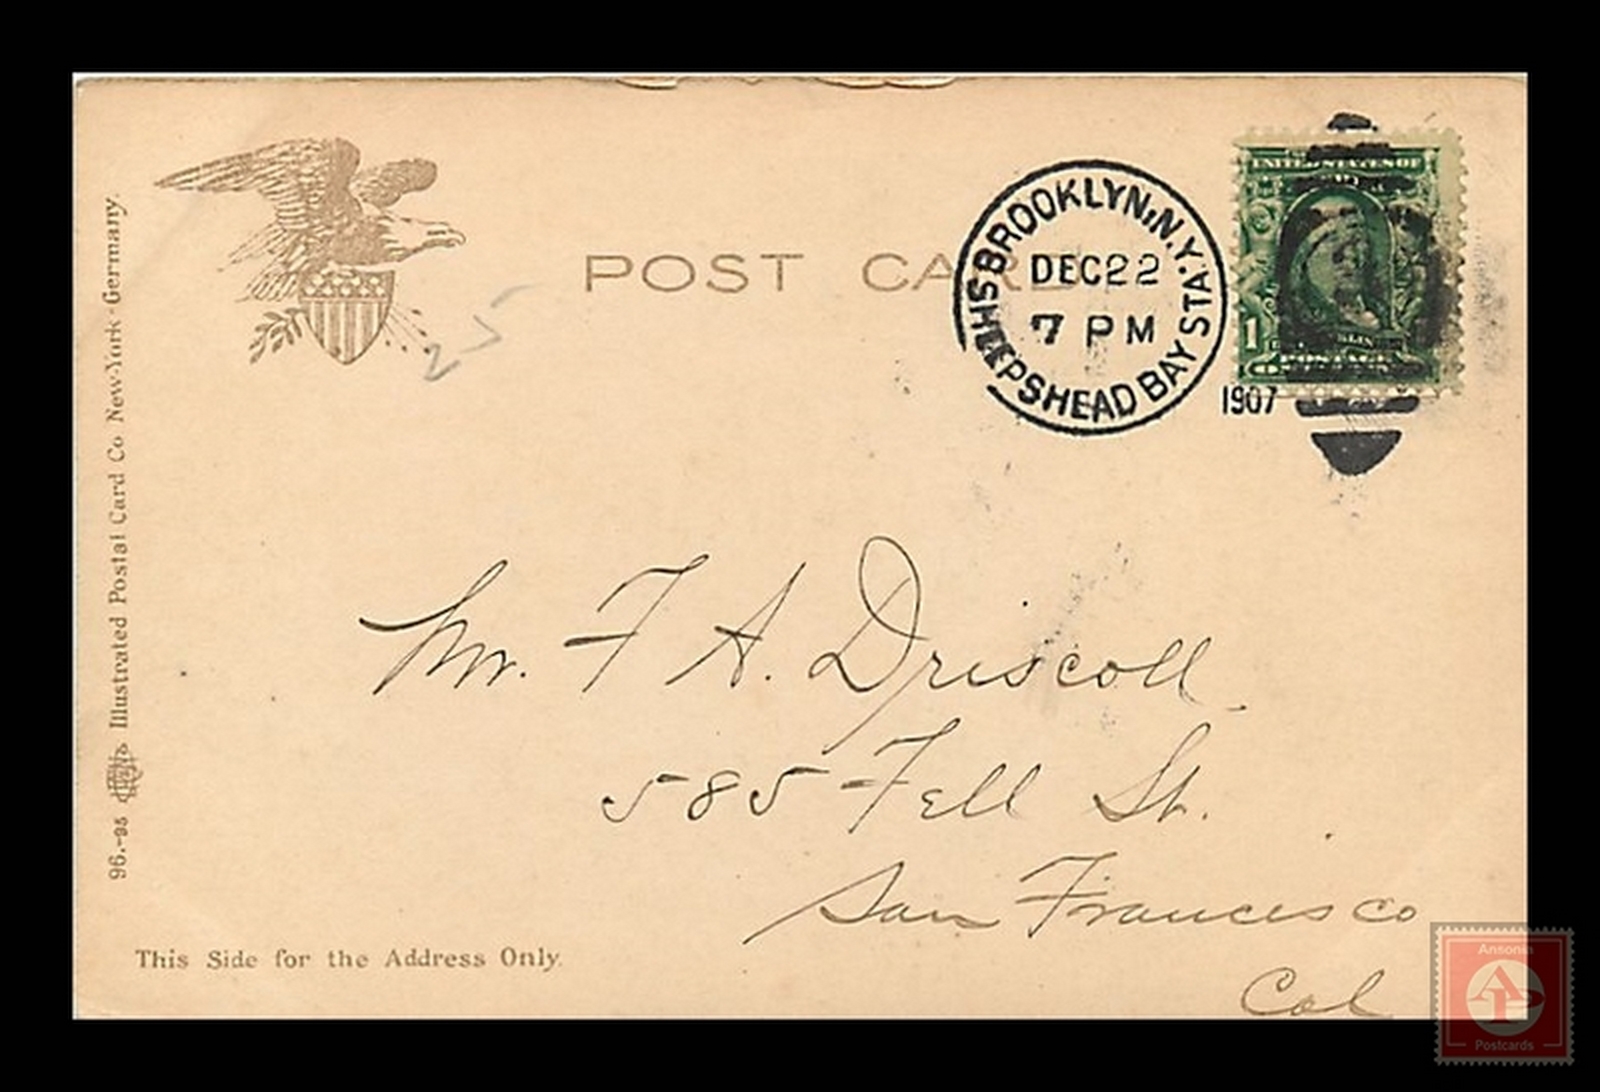 POST CARD
BROOKLYN, N.Y.
DEC 22
7 PM
SHEEPSHEAD BAY STA.
1907
UNITED STATES OF
1
POSTAGE
Mr. F A. Driscoll
585 Fell St.
San Francisco
Cal
This Side for the Address Only.
96.-95 Illustrated Postal Card Co New-York-Germany.
25
Ansonia
AP
Postcards